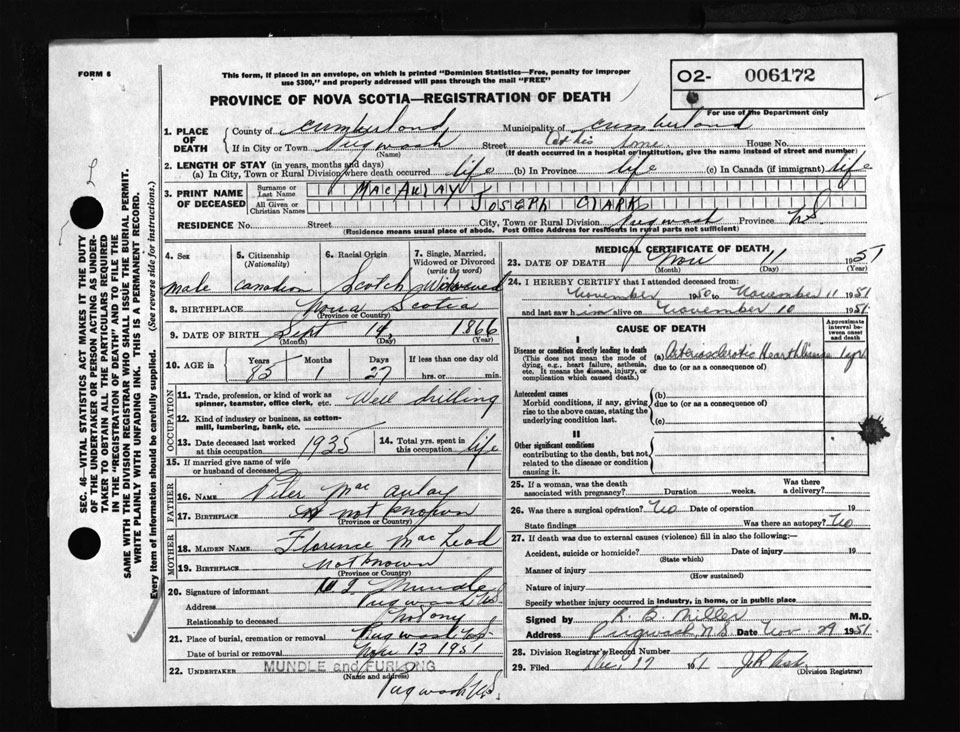 FORM 6
This form, if placed in an envelope, on which is printed "Dominion Statistics—Free, penalty for improper
use $300," and properly addressed will pass through the mail "FREE"
O2- 006172
For use of the Department only
PROVINCE OF NOVA SCOTIA—REGISTRATION OF DEATH
1. PLACE OF DEATH { County of Cumberland Municipality of Cumberland
If in City or Town Pugwash (Name) Street (at his home House No.
(If death occurred in a hospital or institution, give the name instead of street and number)
2. LENGTH OF STAY (in years, months and days)
(a) In City, Town or Rural Division where death occurred life (b) In Province life (c) In Canada (if immigrant) life
3. PRINT NAME OF DECEASED { Surname or Last Name MACAULAY
All Given or Christian Names JOSEPH CLARK
RESIDENCE No. Street City, Town or Rural Division Pugwash Province N.S.
(Residence means usual place of abode. Post Office Address for residents in rural parts not sufficient)
4. Sex male
5. Citizenship (Nationality) Canadian
6. Racial Origin Scotch
7. Single, Married, Widowed or Divorced (write the word) Widowed
8. BIRTHPLACE Nova Scotia
(Province or Country)
9. DATE OF BIRTH Sept 14 1866
(Month) (Day) (Year)
10. AGE in { Years 85 Months 1 Days 27 If less than one day old
hrs. or min.
OCCUPATION
11. Trade, profession, or kind of work as spinner, teamster, office clerk, etc. Well drilling
12. Kind of industry or business, as cotton-mill, lumbering, bank, etc.
13. Date deceased last worked at this occupation 1935
14. Total yrs. spent in this occupation life
15. If married give name of wife or husband of deceased
FATHER
16. NAME Peter MacAulay
17. BIRTHPLACE not known
(Province or Country)
MOTHER
18. MAIDEN NAME Florence MacLeod
19. BIRTHPLACE not known
(Province or Country)
20. Signature of informant Mundle
Address Pugwash NS
Relationship to deceased not any
21. Place of burial, cremation or removal Pugwash NS
Date of burial or removal Nov 13 1951
22. UNDERTAKER MUNDLE and FURLONG
(Name and address)
Pugwash NS
MEDICAL CERTIFICATE OF DEATH
23. DATE OF DEATH Nov 11 1951
(Month) (Day) (Year)
24. I HEREBY CERTIFY that I attended deceased from:
November 1950 to November 11 1951
and last saw him alive on November 10 1951
CAUSE OF DEATH
Approximate interval between onset and death
I
Disease or condition directly leading to death
(This does not mean the mode of dying, e.g., heart failure, asthenia, etc. It means the disease, injury, or complication which caused death.)
(a) Arteriosclerotic Heart Disease 1 yr.
due to (or as a consequence of)
Antecedent causes
Morbid conditions, if any, giving rise to the above cause, stating the underlying condition last.
(b)
due to (or as a consequence of)
(c)
II
Other significant conditions
contributing to the death, but not related to the disease or condition causing it.
25. If a woman, was the death associated with pregnancy? Duration weeks. Was there a delivery?
26. Was there a surgical operation? No Date of operation 19
State findings Was there an autopsy? No
27. If death was due to external causes (violence) fill in also the following:—
Accident, suicide or homicide? Date of injury 19
(State which)
Manner of injury
(How sustained)
Nature of injury
Specify whether injury occurred in industry, in home, or in public place
Signed by R. B. Miller M.D.
Address Pugwash, N.S. Date Nov 29 1951.
28. Division Registrar's Record Number
29. Filed Dec 17
(Division Registrar)
SEC. 46—VITAL STATISTICS ACT MAKES IT THE DUTY
OF THE UNDERTAKER OR PERSON ACTING AS UNDER-
TAKER TO OBTAIN ALL THE PARTICULARS REQUIRED
IN THE "REGISTRATION OF DEATH" AND TO FILE THE
SAME WITH THE DIVISION REGISTRAR WHO SHALL ISSUE THE BURIAL PERMIT.
WRITE PLAINLY WITH UNFADING INK. THIS IS A PERMANENT RECORD.
Every item of information should be carefully supplied. (See reverse side for instructions.)